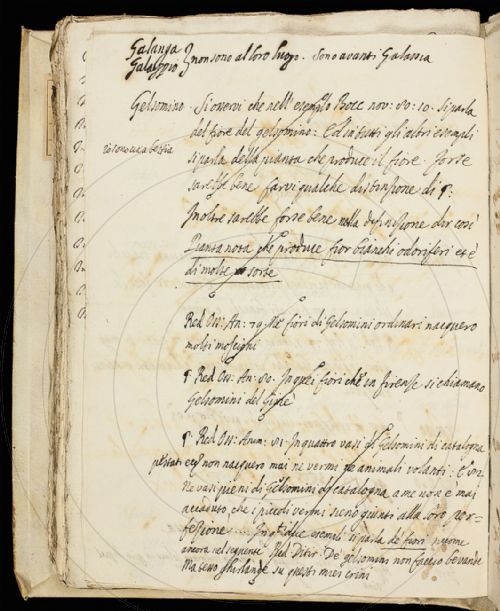 Galanga
Galappio } non sono al loro luogo. Sono avanti Galassia
Gelsomino. Si osservi che nell' esemplo Bocc. nov: 80: 10. si parla
del fiore del gelsomino: Ed in tutti gli altri esempli
si parla della pianta che produce il fiore. Forse
sarebbe bene farvi qualche distinzione di §:
Inoltre sarebbe forse bene nella definizione dir così
Pianta nota che produce fior bianchi odoriferi et è
di molte sorte
Red. Oss: An: 79. fiori di Gelsomini ordinari nacquero
molti moscioni
§. Red. Oss: An: 80. In quei fiori che in firenze si chiamano
Gelsomini del Gimè
§. Red. Oss: Anim: 81. In quattro vasi di Gelsomini di catalogna
pestati non nacquero mai ne vermi ne animali volanti: E
Ne vasi pieni di Gelsomini di catalogna a me non è mai
accaduto che i piccoli vermi sieno giunti alla loro per-
fezione. In esempli si parla de fiori
ancora nel seguente Red. Ditir. De gelsomini non faccio bevande
Ma tesso ghirlande su questi miei crini